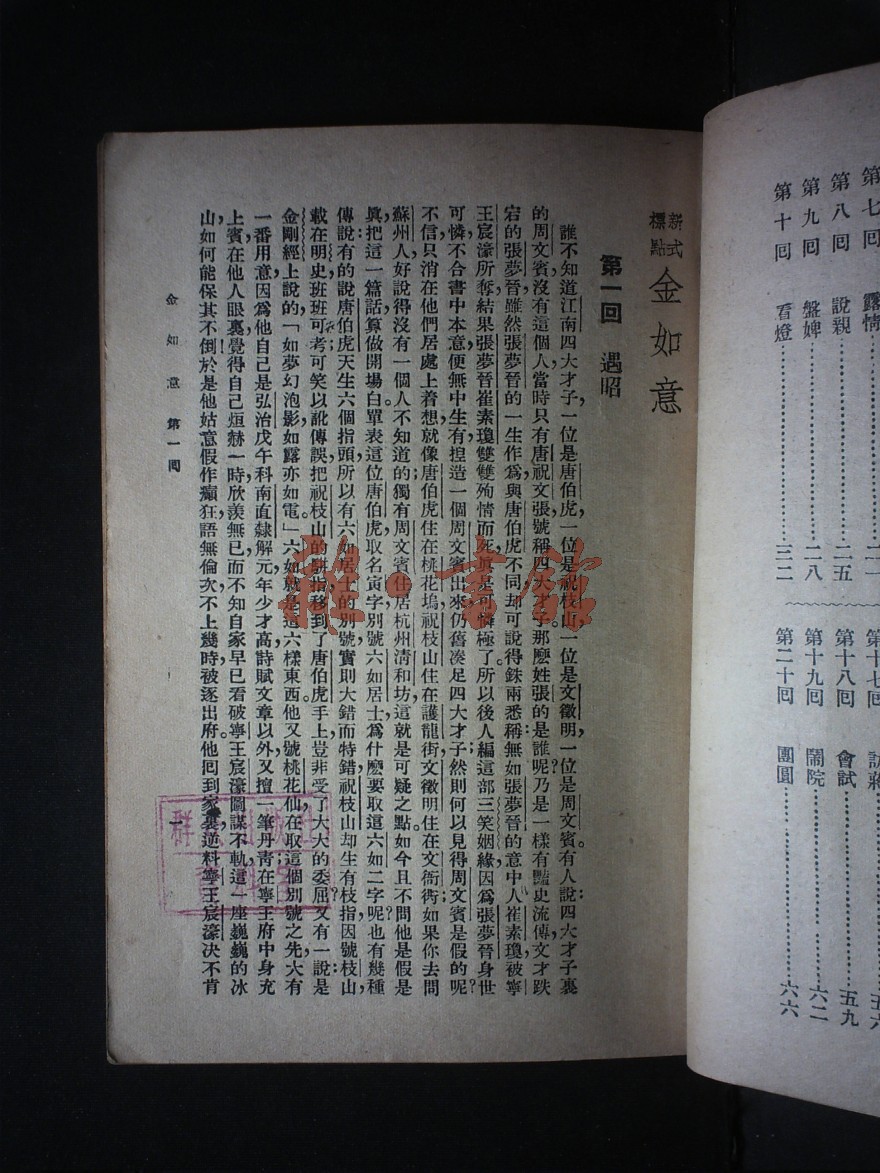 第七回 露情……………二一
第八回 說親……………二五
第九回 盤婢……………二八
第十回 看燈……………三二
第十七回 訪蔣……………五六
第十八回 會試……………五九
第十九回 鬧院……………六二
第二十回 團圓……………六六
新式標點 金如意
第一回 遇昭
誰不知道江南四大才子,一位是唐伯虎,一位是祝枝山,一位是文徵明,一位是周文賓。有人說:四大才子裏
的周文賓,沒有這個人,當時只有唐祝文張,號稱四大才子。那麽姓張的是誰呢?乃是一樣有豔史流傳,文才跌
宕的張夢晉。雖然張夢晉的一生作爲,與唐伯虎不同,却可說得銖兩悉稱。無如張夢晉的意中人崔素瓊,被寧
王宸濠所奪,結果張夢晉崔素瓊雙雙殉情而死,眞是可憐極了。所以後人編這部三笑姻緣,因爲張夢晉身世
可憐,不合書中本意,便無中生有,揑造一個周文賓出來,仍舊湊足四大才子;然則何以見得周文賓是假的呢?
不信,只消在他們居處上着想,就像唐伯虎住在桃花塢,祝枝山住在護龍街,文徵明住在文衙衖,如果你去問
蘇州人,好說得沒有一個人不知道的;獨有周文賓住居杭州淸和坊,這就是可疑之點。如今且不問他是假是
眞,把這一篇話,算做開場白。單表這位唐伯虎,取名寅,字別號六如居士,爲什麽要取這六如二字呢?也有幾種
傳說:有的說唐伯虎天生六個指頭,所以有六如居士的別號,實則大錯而特錯,祝枝山却生有枝指,因號枝山,
載在明史,班班可考;可笑以訛傳誤,把祝枝山的駢指,移到了唐伯虎手上,豈非受了大大的委屈?又有一說:是
金剛經上說的「如夢幻泡影,如露亦如電。」六如就是這六樣東西。他又號桃花仙,在取這個別號之先,大有
一番用意,因爲他自己是弘治戊午科南直隸解元,年少才高,詩賦文章以外,又擅一筆丹靑,在寧王府中身充
上賓,在他人眼裏,覺得自己烜赫一時,欣羡無已,而不知自家早已看破寧王宸濠圖謀不軌,這一座巍巍的冰
山,如何能保其不倒!於是他姑意假作癲狂,語無倫次,不上幾時,被逐出府。他囘到家裏,逆料寧王宸濠決不肯
金如意 第一囘
一
雜·書館